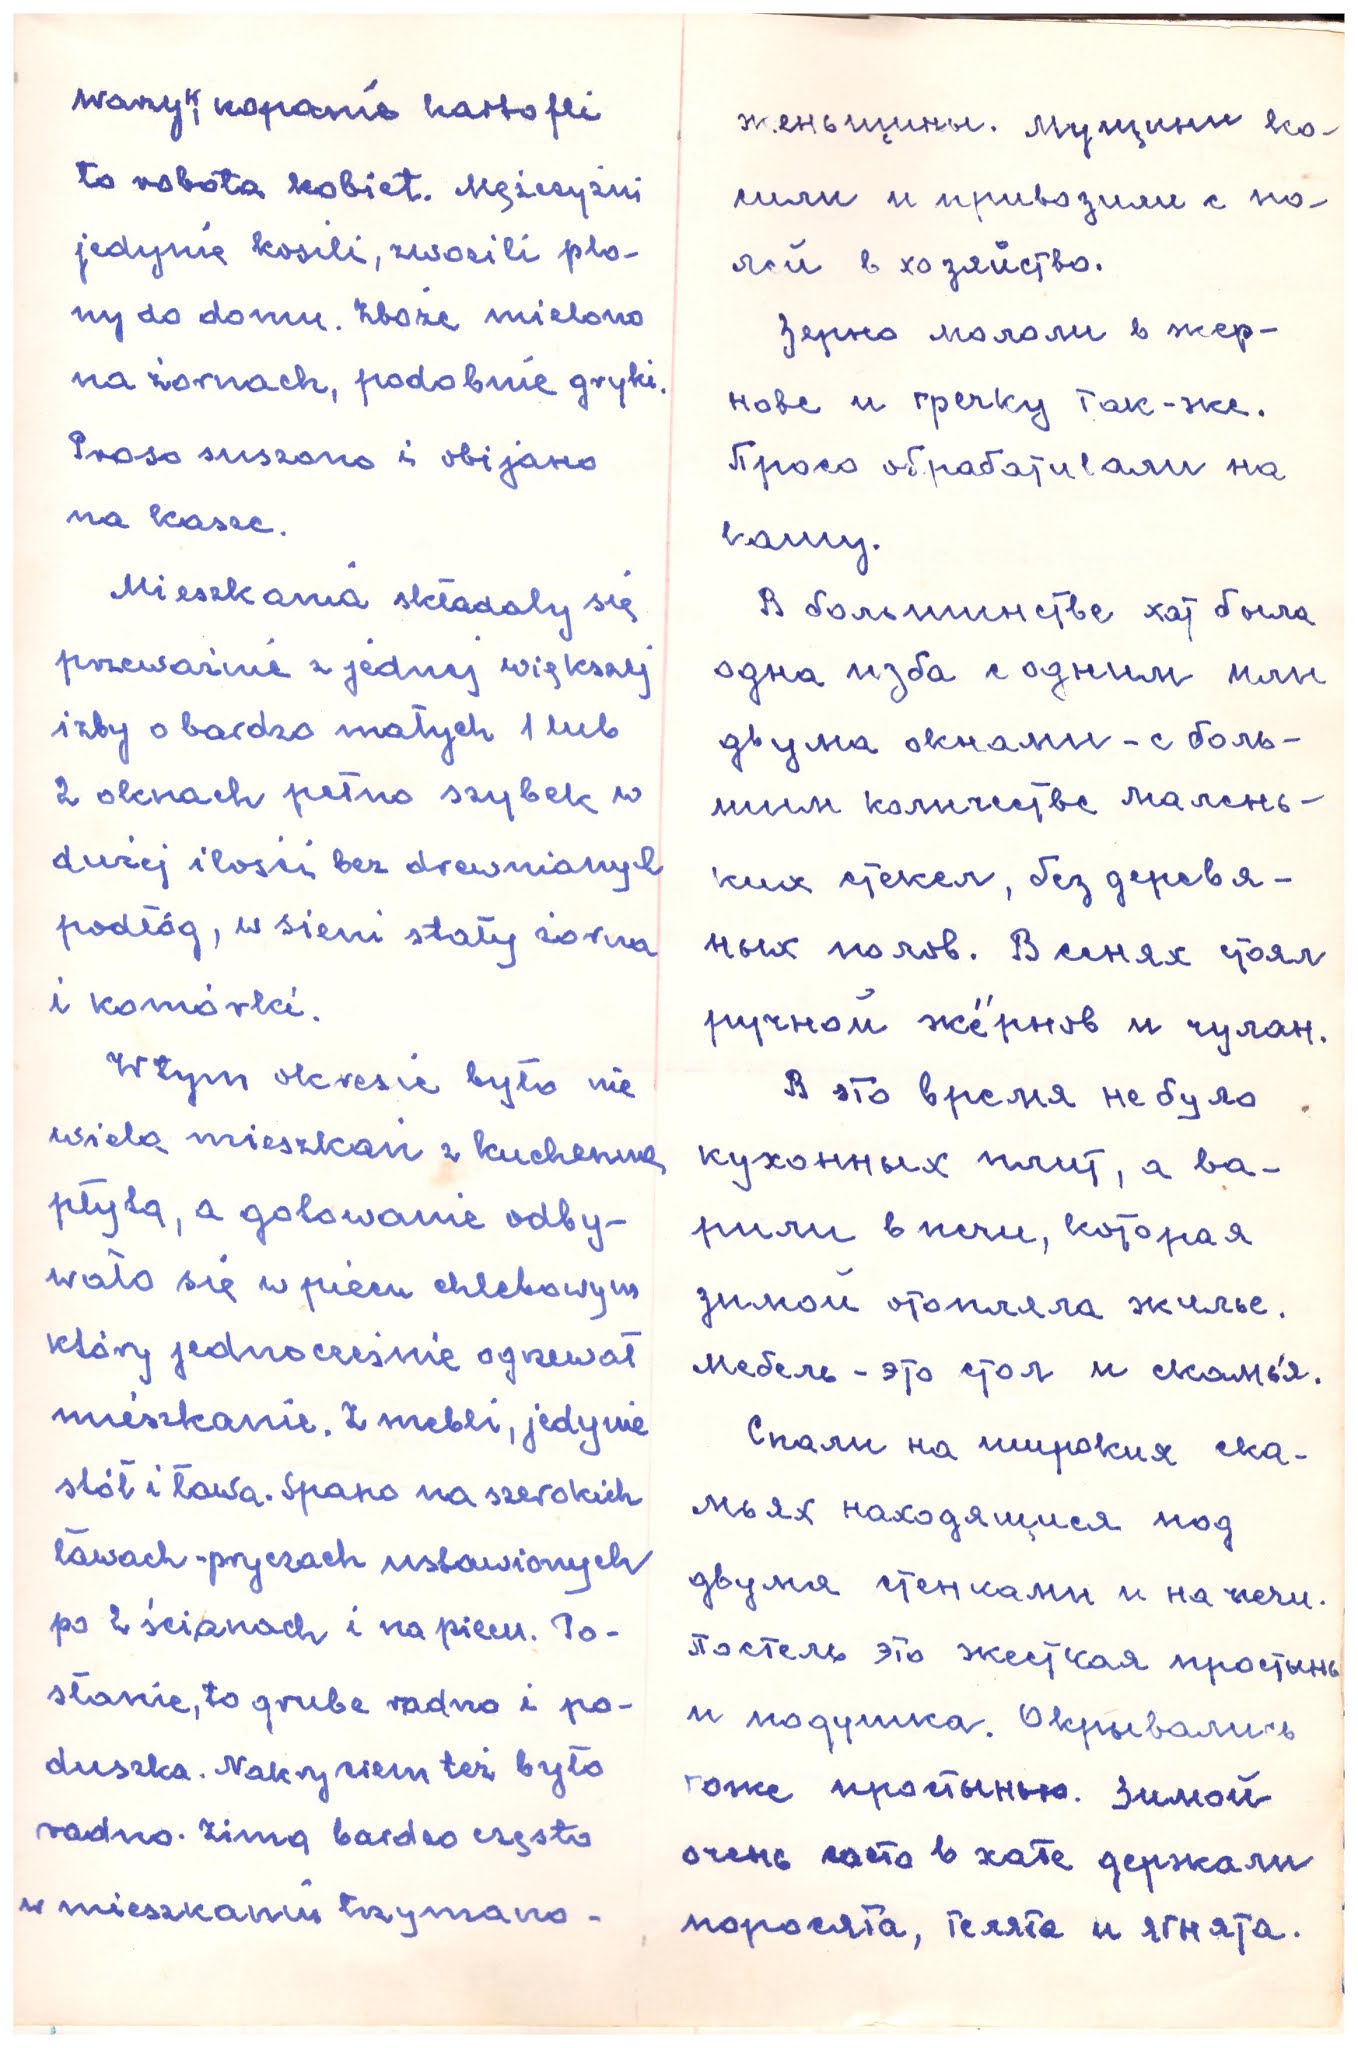 warzyw, kopanie kartofli
to robota kobiet. Mężczyźni
jedynie kosili, zwozili plo-
ny do domu. Zboże mielono
na żarnach, podobnie gryki.
Proso suszono i obijano
na kasze.
Mieszkania składały się
przeważnie z jednej większej
izby o bardzo małych 1 lub
2 oknach pełno szybek w
dużej ilości, bez drewnianych
podłóg, w sieni stały żarna
i komórki.
W tym okresie było nie
wiela mieszkań z kuchenną
płytą, a gotowanie odby-
wało się w piecu chlebowym
który jednocześnie ogrzewał
mieszkanie. Z mebli, jedynie
stół i ława. Spano na szerokich
ławach-pryczach ustawionych
po 2 ścianach i na piecu. Po-
słanie, to grube radno i po-
duszka. Nakryciem też było
radno. Zimą bardzo często
w mieszkaniu trzymano-
женьщины. Мущини ко-
сили и привозили с по-
лей в хозяйство.
Зерно мололи в жер-
нове и гречку так-же.
Просо обрабативали на
кашу.
В большинстве хат была
одна изба с одним или
двума окнами - с боль-
шим количестве малень-
ких стекел, без деревя-
ных полов. В сенях стоял
ручной жёрнов и чулан.
В это время небуло
кухонных плит, а ва-
рили в печи, которая
зимой отопляла жилье.
Мебель - это стол и скамья.
Спали на широких ска-
мьях находящися под
двумя стенками и на печи.
Постель это жесткая простынь
и подушка. Окрывались
тоже простынью. Зимой
очень часто в хате держали
поросята, телята и ягнята.